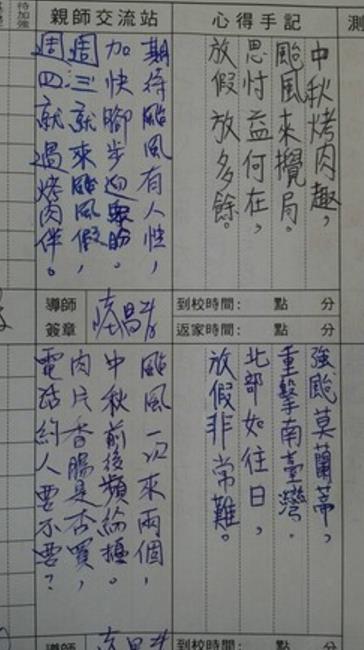 待加強
親師交流站
心得手記
測
中秋烤肉趣,
颱風來攪局。
思忖益何在,
放假放多餘。
期待颱風有人性,
加快腳步迎眾盼。
周三就來颱風假,
周四就過烤肉伴。
導師簽章
到校時間: 點 分
返家時間: 點 分
強颱莫蘭蒂,
重擊南臺灣.
北部如往日,
放假非常難。
颱風一次來兩個,
中秋前後頻輪
肉片香腸是否買,
電話約人要不要?
導師